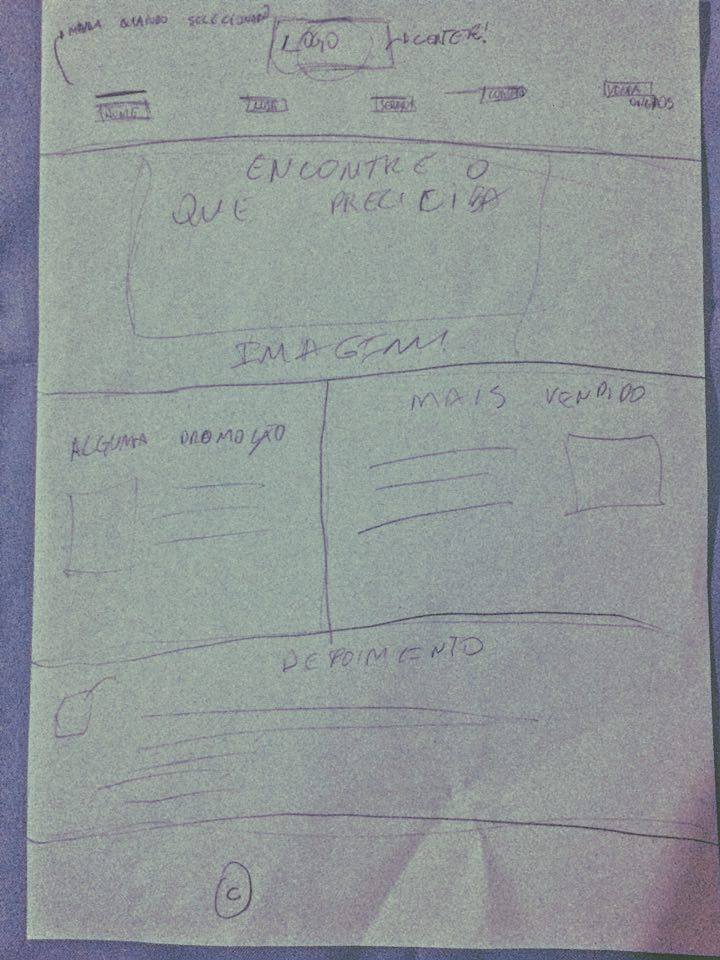 MUDA QUANDO SELECIONADO
LOGO
CENTER!
HOME
SOBRE
CONTATO
ENCONTRE O
QUE PRECICISA
IMAGEM!
ALGUMA PROMOÇÃO
MAIS VENDIDO
DEPOIMENTO
C